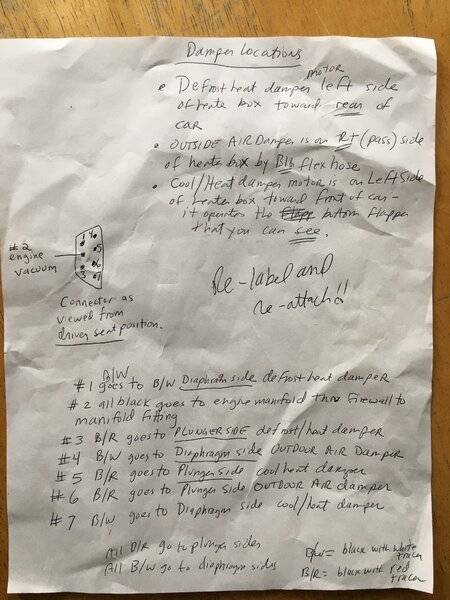 Damper Locations
• Defrost heat damper motor left side
of heate box toward rear of
car
• OUTSIDE AIR Damper is on Rt (pass) side
of heate box by Big flex hose
• Cool/Heat damper motor is on Left Side
of heate box toward front of car-
it operates the bottom flapper
that you can see.
#2
engine
vacuum
1 4
5
6
3 7
Connector as
viewed from
driver seat position.
Re-label and
re-attach!!
B/W
#1 goes to B/W Diaphram side defrost heat damper
#2 all black goes to engine manifold thru Firewall to
manifold fitting
#3 B/R goes to PLUNGER SIDE defrost/heat damper
#4 B/W goes to Diaphragm side OUTDOOR AIR DAMPER
#5 B/R goes to Plunger side cool heat damper
#6 B/R goes to Plunger Side OUTDOOR AIR damper
#7 B/W goes to Diaphragm side cool/heat damper
All B/R go to plunger sides
All B/W go to diaphragm sides
B/W = black with white
tracer
B/R = black with red
tracer